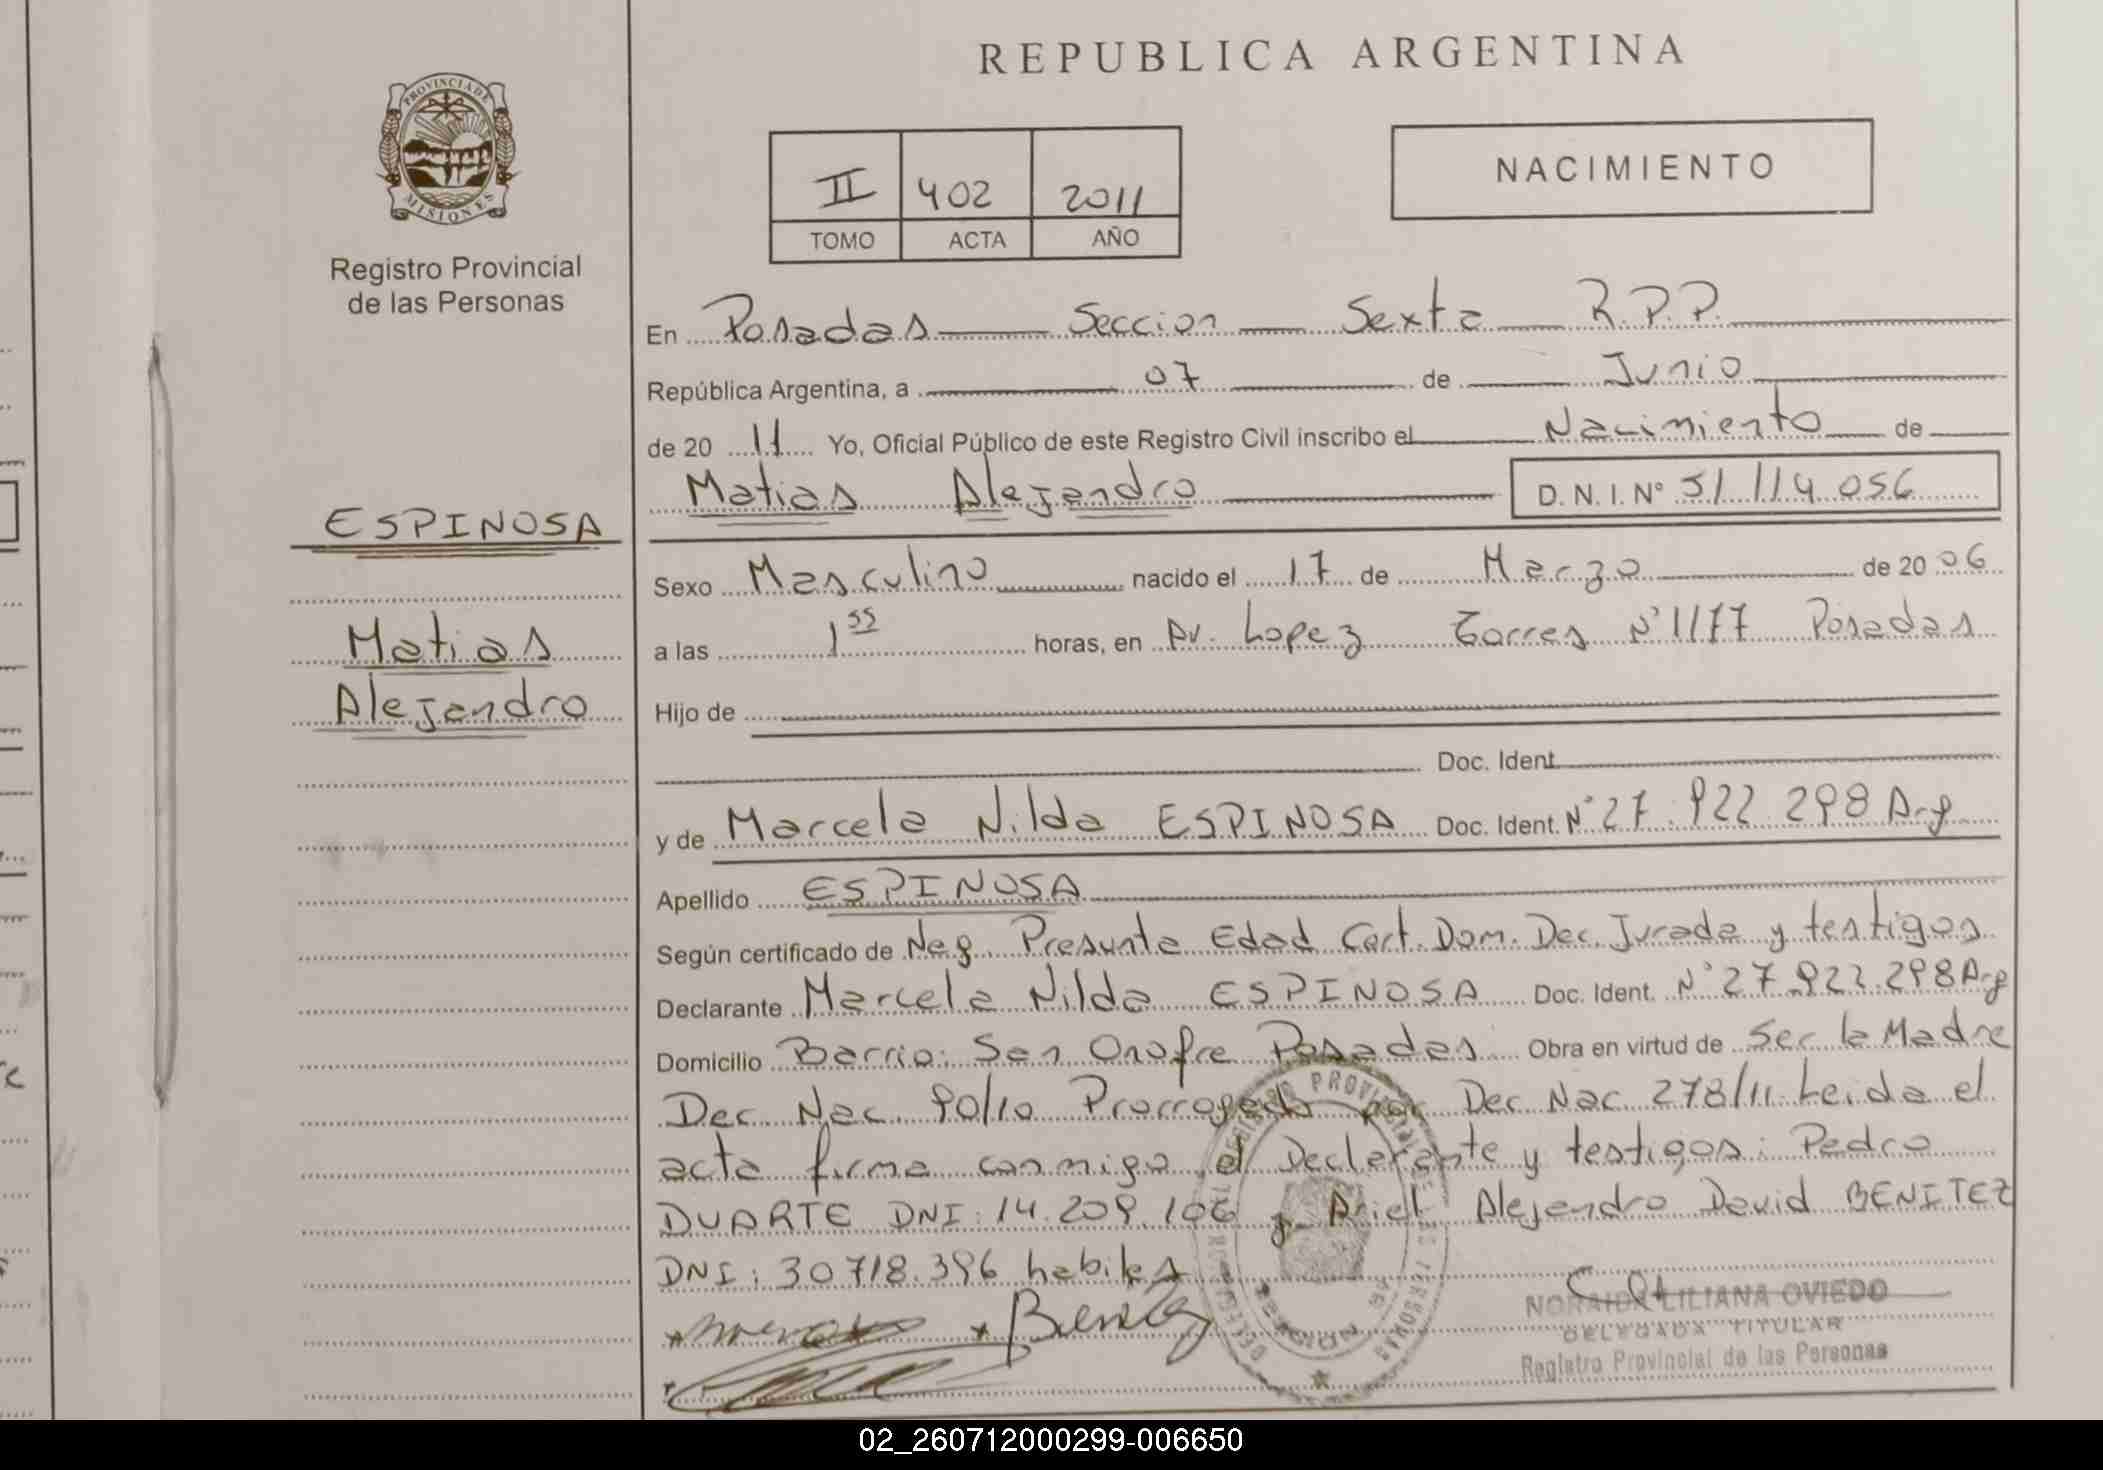 REPUBLICA ARGENTINA
PROVINCIA DE
MISIONES
Registro Provincial
de las Personas
II 402 2011
TOMO ACTA AÑO
NACIMIENTO
En Posadas Seccion Sexta R.P.P.
República Argentina, a 07 de Junio
de 20 11 Yo, Oficial Público de este Registro Civil inscribo el Nacimiento de
Matias Alejandro D.N.I. Nº 51.114.056
ESPINOSA
Matias
Alejandro
Sexo Masculino nacido el 17 de Marzo de 2006
a las 1 55 horas, en Av. Lopez Torres Nº 1177 Posadas
Hijo de
Doc. Ident.
y de Marcela Nilda ESPINOSA Doc. Ident. Nº 27.922.298 Arg
Apellido ESPINOSA
Según certificado de Neg. Presunta Edad Cert. Dom. Dec. Jurada y testigos
Declarante Marcela Nilda ESPINOSA Doc. Ident. Nº 27.922.298 Arg
Domicilio Barrio: San Onofre Posadas Obra en virtud de Ser la Madre
Dec. Nac. 90/10 Prorrogado por Dec Nac. 278/11. Leida el
acta firma conmigo el Declarante y testigos: Pedro
DUARTE DNI: 14.209.106 y Ariel Alejandro David BENITEZ
DNI: 30.718.396 habiles
Benitez
NORAIDA LILIANA OVIEDO
DELEGADA TITULAR
Registro Provincial de las Personas
02_260712000299-006650